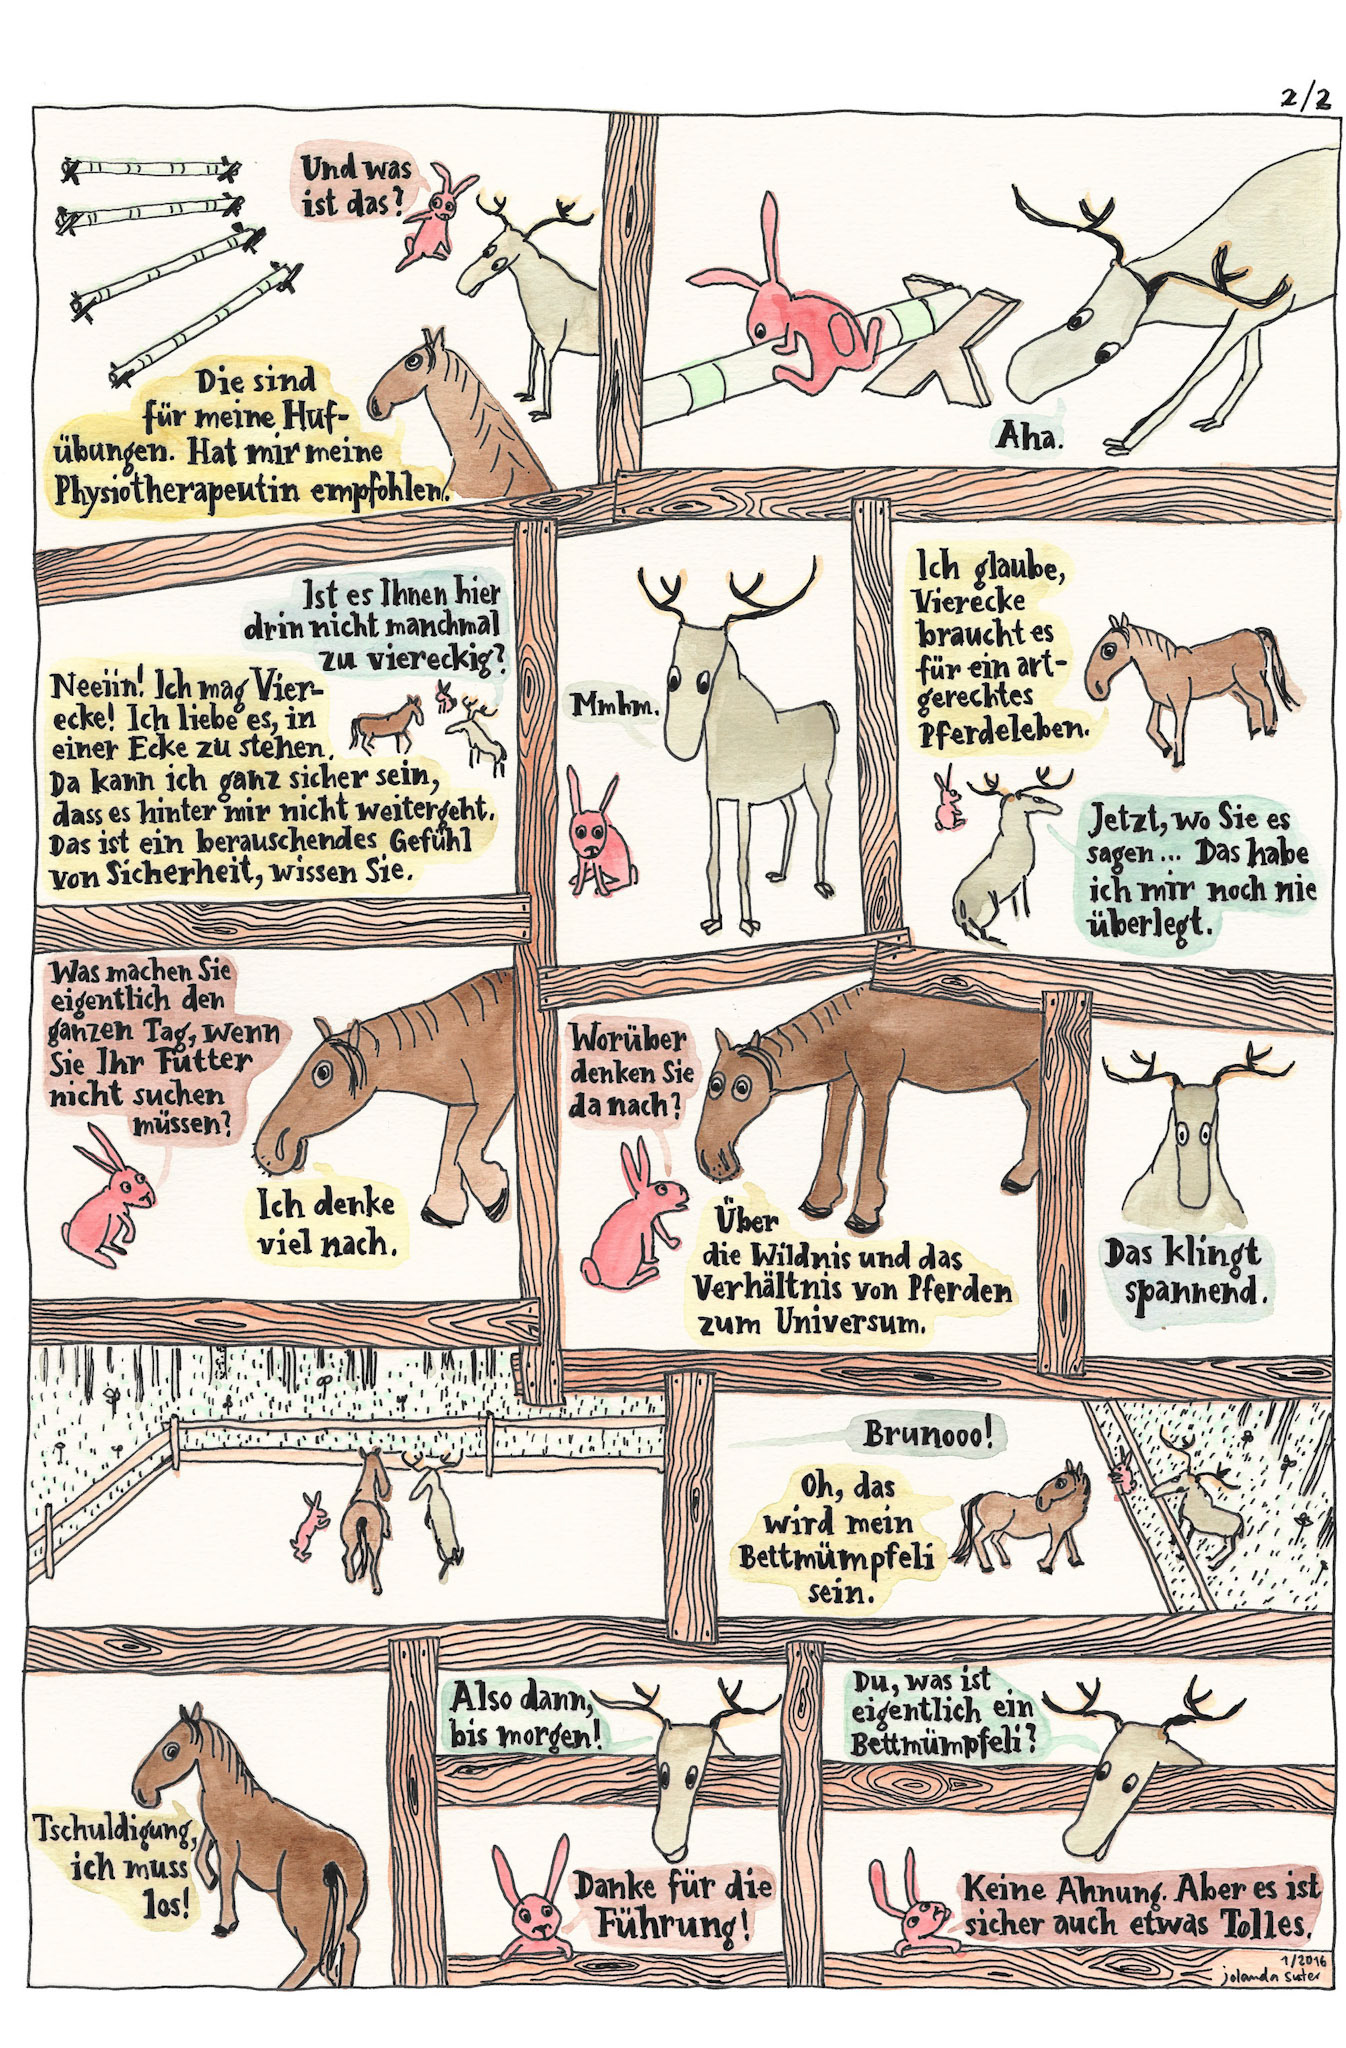 2/2
Und was
ist das?
Die sind
für meine Huf-
übungen. Hat mir meine
Physiotherapeutin empfohlen.
Aha.
Ist es Ihnen hier
drin nicht manchmal
zu viereckig?
Neeiin! Ich mag Vier-
ecke! Ich liebe es, in
einer Ecke zu stehen.
Da kann ich ganz sicher sein,
dass es hinter mir nicht weitergeht.
Das ist ein berauschendes Gefühl
von Sicherheit, wissen Sie.
Mmhm.
Ich glaube,
Vierecke
braucht es
für ein art-
gerechtes
Pferdeleben.
Jetzt, wo Sie es
sagen... Das habe
ich mir noch nie
überlegt.
Was machen Sie
eigentlich den
ganzen Tag, wenn
Sie Ihr Futter
nicht suchen
müssen?
Ich denke
viel nach.
Worüber
denken Sie
da nach?
Über
die Wildnis und das
Verhältnis von Pferden
zum Universum.
Das klingt
spannend.
Brunooo!
Oh, das
wird mein
Bettmümpfeli
sein.
Tschuldigung,
ich muss
los!
Also dann,
bis morgen!
Danke für die
Führung!
Du, was ist
eigentlich ein
Bettmümpfeli?
Keine Ahnung. Aber es ist
sicher auch etwas Tolles.
1/2016
jolanda suter